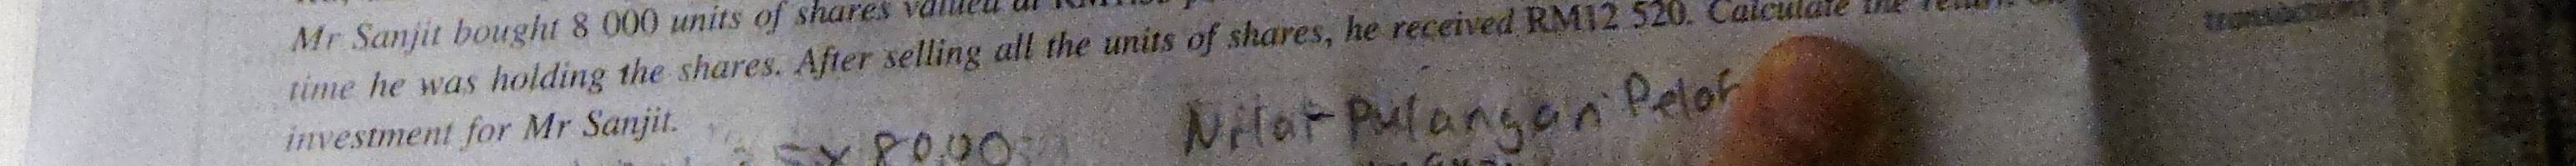 Mr Sanjit bought 8 000 units of shares valued at
time he was holding the shares. After selling all the units of shares, he received RM12 520. Calculate the return
investment for Mr Sanjit.
5x 8000
Nilai Pulangan Pelab